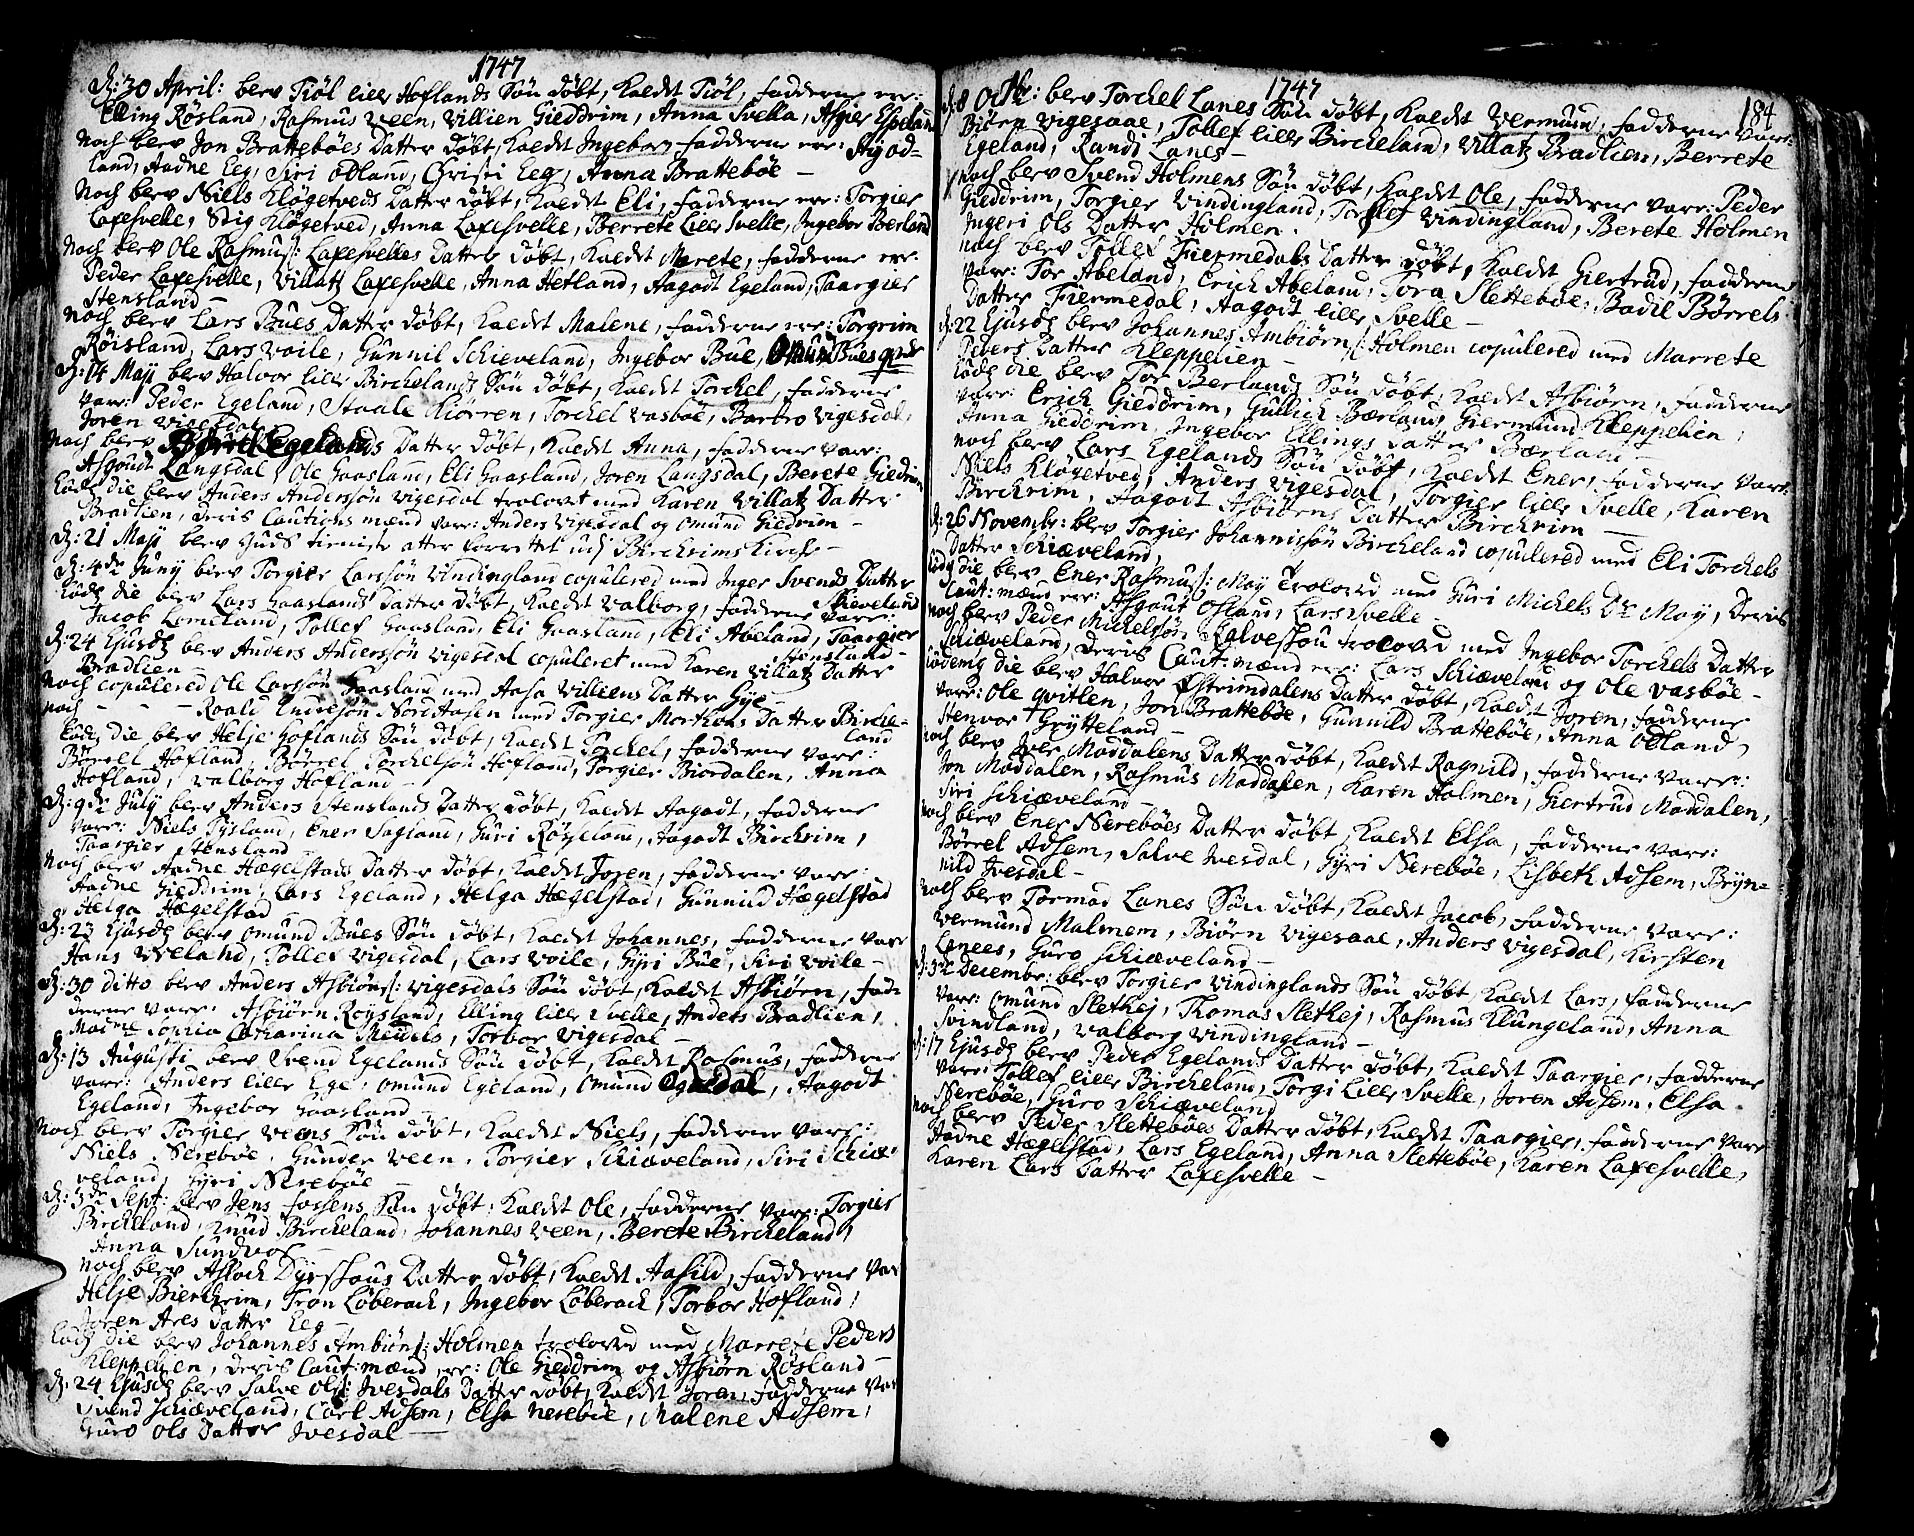 1747
d: 30 April: blev Tiøl lille Hoflands Søn døbt, kaldt Tiøl, fadderne ere:
Elling Røsland, Rasmus Veen, Villien Gieddrim, Anna Svella, Asgier Espeland
Noch blev Jon Brattebøes Datter døbt, kaldt Ingebor, fadderne ere: Agod-
land, Aadne Eeg, Siri Ødland, Christi Eeg, Anna Brattebøe —
Noch blev Niels Kløgetveds Datter døbt, kaldt Eli, fadderne ere: Torgier
Laxesvelle, Stig Kløgetved, Anna Laxesvelle, Berrete Lille Svelle, Ingebor Berland
Noch blev Ole Rasmuss: Laxesvelles Datter døbt, kaldt Merete, fadderne ere
Peder Laxesvelle, Villatz Laxesvelle, Anna Hetland, Aagodt Egeland, Taargier
Stensland —
Noch blev Lars Bues Datter døbt, kaldt Malene, fadderne ere: Torgrim
Røisland, Lars Voile, Gunnil Schieveland, Ingebor Bue, Omund Bues
d: 14 Maji blev Halvor lille Birchelands Søn døbt, kaldt Torchel, fadderne
vare: Peder Egeland, Staale Kiørren, Torchel Vasbøe, Barbro Vigesdal,
Joren Vigesdal
Noch blev Egelands Datter døbt, kaldt Anna, fadderne vare:
Asgoudt Langsdal, Ole Gaasland, Eli Gaasland, Joren Langsdal, Berete Giedrim
Eodg die blev Anders Anderssøn Vigesdal trolovt med Karen Villatz Datter
Bradlien, deris Cautions mænd vare: Anders Vigesdal og Omund Giedrim —
d: 21 Maji blev Guds tieniste atter forrettet udj Birchrims Kirche —
d: 4de Junij blev Torgier Larssøn Vindingland copulered med Inger Svends Datter
Schieveland
Eodg die blev Lars Gaaslands Datter døbt, kaldt Valborg, fadderne vare:
Jacob Lomeland, Tollef Gaasland, Eli Gaasland, Eli Abeland, Taargier
Stensland —
d: 24 Ejusdg blev Anders Anderssøn Vigesdal copuleret med Karen Villatz Datter
Bradlien —
Noch copulered Ole Larssøn Gaasland med Aasa Villiens Datter Gye —
noch — — — Roald Endresøn Nordaasen med Torgier Morthens Datter Birche-
land
Eodg die blev Helje Hoflands Søn døbt, kaldt Torchel, fadderne vare:
Børrel Hofland, Børrel Torchelsøn Hofland, Torgier Biordalen, Anna
Hofland, Valborg Hofland —
d: 9de July blev Anders Stenslands Datter døbt, kaldt Aagodt, fadderne
vare: Niels Tysland, Ener Sagland, Guri Røysland, Aagodt Birchrim,
Taargier Stensland
Noch blev Aadne Hægelstads Datter døbt, kaldt Joren, fadderne vare:
Aadne Gieddrim, Lars Egeland, Helga Hægelstad, Gunnild Hægelstad
Helga Hægelstad
d: 23 Ejusdg blev Omund Bues Søn døbt, kaldt Johannes, fadderne vare
Hans Veland, Tollef Vigesdal, Lars Voile, Gyri Bue, Siri Voile —
d: 30 ditto blev Anders Asbiørns: Vigesdals Søn døbt, kaldt Asbiørn, fad-
derne vare: Asbiørn Roysland, Elling lille Svelle, Anders Bradlien,
Sophia Catharina Meidels, Torbor Vigesdal —
d: 13 Augusti blev Svend Egelands Søn døbt, kaldt Rasmus, fadderne
vare: Anders lille Ege, Omund Egeland, Omund Ogredal, Aagodt
Egeland, Ingebor Gaasland —
Noch blev Torgier Veens Søn døbt, kaldt Niels, fadderne vare:
Niels Nerebøe, Gunder Veen, Torgier Schiæveland, Siri Schiæ-
veland, Gyri Nerebøe —
d: 3de Sept: blev Jens Fossens Søn døbt, kaldt Ole, fadderne vare: Torgier
Bircheland, Knud Bircheland, Johannes Veen, Berete Bircheland,
Anna Sundvor —
Noch blev Aslach Dyrshous Datter døbt, kaldt Aasild, fadderne var
Helje Bierchrim, Tron Løberach, Ingebor Løberach, Torbor Hofland,
Joren Ares Datter Eeg —
Eodg die blev Johannes Ambiørns: Holmen trolovd med Marrete Peders
Kleppelien, deris Caut: mænd ere: Ole Gieddrim og Asbiørn Røsland —
d: 24 Ejusdg blev Salve Ols: Ivesdals Datter døbt, kaldt Joren, fadderne var
Svend Schiæveland, Carl Adsem, Elsa Nerebøe, Malene Adsem,
Guro Ols Datter Ivesdal —
1747
184
d: 8 Octbr: blev Torchel Lanes Søn døbt, kaldt Vermund, fadderne vare:
Biørn Vigesaae, Tollef lille Bircheland, Villatz Bradlien, Berrete
Egeland, Randi Lanes —
Noch blev Svend Holmens Søn døbt, kaldt Ole, fadderne vare: Peder
Gieddrim, Torgier Vindingland, Torlef Vindingland, Berete Holmen
Ingeri Ols Datter Holmen.
Noch blev Tollef Fiermedals Datter døbt, kaldt Giertrud, fadderne
vare: Tor Abeland, Erich Abeland, Tora Slettebøe, Bodil Børrels
Datter Fiermedal, Aagodt lille Svelle —
d: 22 Ejusdg blev Johannes Ambiørns: Holmen copulered med Marrete
Peders Datter Kleppelien —
Eodg die blev Tor Berlands Søn døbt, kaldt Asbiørn, fadderne
vare: Erich Gieddrim, Gullich Bærland, Giermund Kleppelien,
Anna Gieddrim, Ingebor Ellings Datter Bærland —
Noch blev Lars Egelands Søn døbt, kaldt Ener, fadderne vare:
Niels Kløgetved, Anders Vigesdal, Torgier lille Svelle, Karen
Birchrim, Aagodt Asbiørns Datter Birchrim —
d: 26 Novembr: blev Torgier Johannissøn Bircheland copulered med Eli Torchels
Datter Schiæveland,
Eodg die blev Ener Rasmuss: Moy trolovd med Guri Michels Dr Moy, deris
Caut: mænd ere: Asgout Ofland, Lars Svelle —
Noch blev Peder Michelsøn Salvessou trolovd med Ingebor Torchels Datter
Schiæveland, deris Caut: mænd ere: Lars Schiæveland og Ole Vasbøe —
Eodemg die blev Halvor Østrimdalens Datter døbt, kaldt Joren, fadderne
vare: Ole Qvitlen, Jon Brattebøe, Gunnild Brattebøe, Anna Ødland,
Stenvor Grytteland —
Noch blev Iver Moddalens Datter døbt, kaldt Ragnild, fadderne vare:
Jon Moddalen, Rasmus Moddalen, Karen Holmen, Giertrud Moddalen,
Siri Schiæveland —
Noch blev Ener Nerebøes Datter døbt, kaldt Elsa, fadderne vare:
Børrel Adsem, Salve Ivesdal, Gyri Nerebøe, Lisbeth Adsem, Bryn-
nild Ivesdal —
Noch blev Tormod Lanes Søn døbt, kaldt Jacob, fadderne vare:
Vermund Malmem, Biørn Vigesaae, Anders Vigesdal, Kirsten
Lanees, Guro Schiæveland —
d: 3de Decembr: blev Torgier Vindinglands Søn døbt, kaldt Lars, fadderne
vare: Omund Slethej, Thomas Slethej, Rasmus Klungeland, Anna
Svindland, Valborg Vindingland —
d: 17 Ejusdg blev Peder Egelands Datter døbt, kaldt Taargier, fadderne
vare: Tollef lille Bircheland, Torgi Lille Svelle, Joren Adsem, Elsa
Nerebøe, Guro Schiæveland
Noch blev Peder Slettebøes Datter døbt, kaldt Taargier, fadderne vare
Aadne Hægelstad, Lars Egeland, Anna Slettebøe, Karen Laxesvelle,
Karen Lars Datter Laxesvelle —